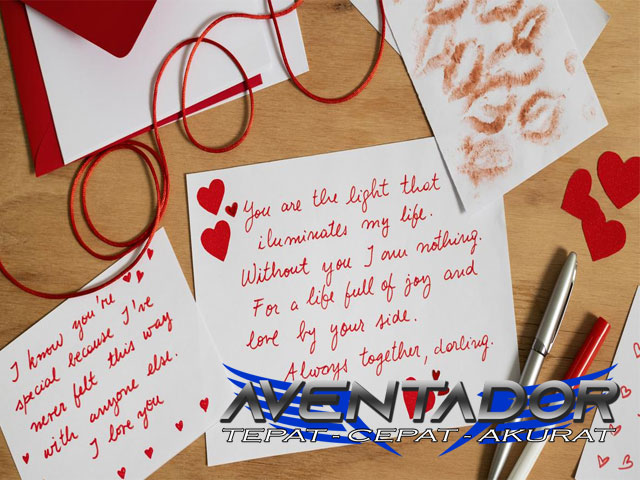 You are the light that
iluminates my life.
Without you I am nothing.
For a life full of joy and
love by your side.
Always together, darling.
I know you're
special because I've
never felt this way
with anyone else.
I love you
AVENTADOR
TEPAT - CEPAT - AKURAT